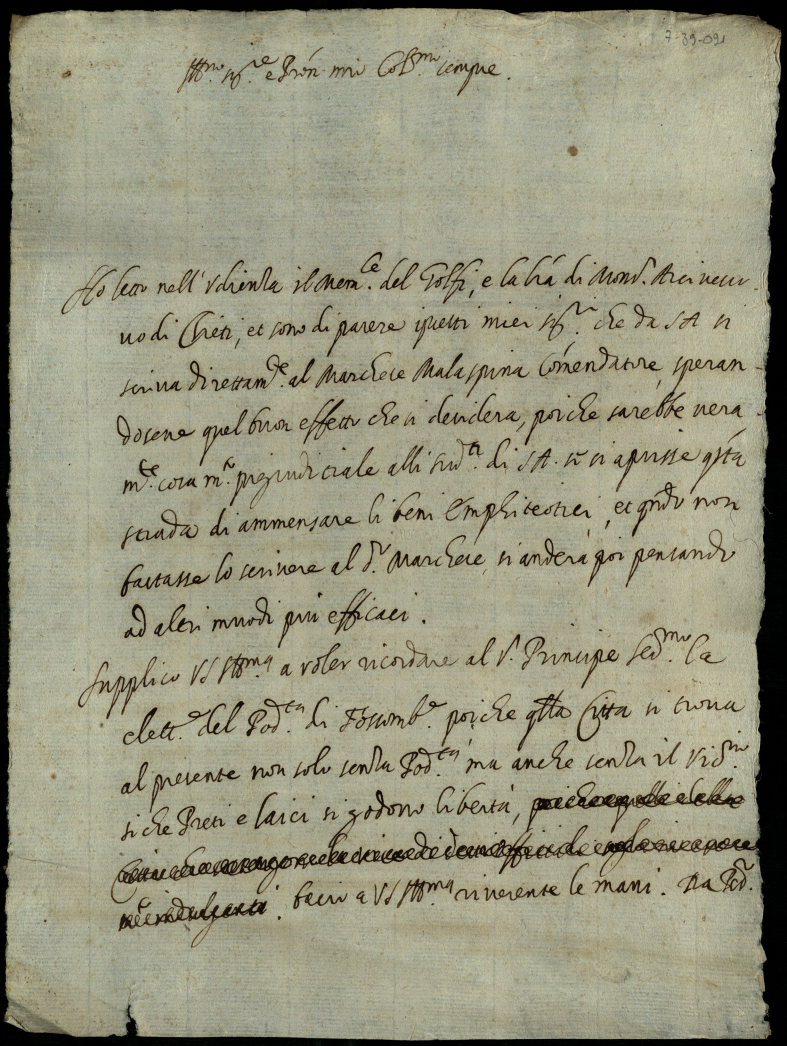 7-39-091
Ill.mo Sig.re e Prõn mio Col.mo sempre.
Ho letto nell'Udienza il Mem.le del Golfi, e la trã di Mons.r Arcivesco-
vo di Chieti, et sono di parere questi miei Sig.ri che da SA si
scriva direttam.te al Marchese Malaspina Cõmendatore, speran-
dosene quel buon effetto che si desidera, poiche sarebbe vera-
m.te cosa m.to pregiudiciale alli sud.ti di SA. se si aprisse q.sta
strada di ammensare li beni Emphiteotici, et q.ndo non
bastasse lo scrivere al d.o Marchese, si anderà poi pensando
ad altri muodi più efficaci.
Supplico VS Ill.ma a voler ricordare al S.r Principe Ser.mo la
elett.e del Pod.tà di Fossomb.e poiche q.lla Città si trova
al presente non solo senza Pod.tà ma anche senza il Vic.rio
siche Preti e laici si godono libertà,
bacio a VS Ill.ma riverente le mani. Da